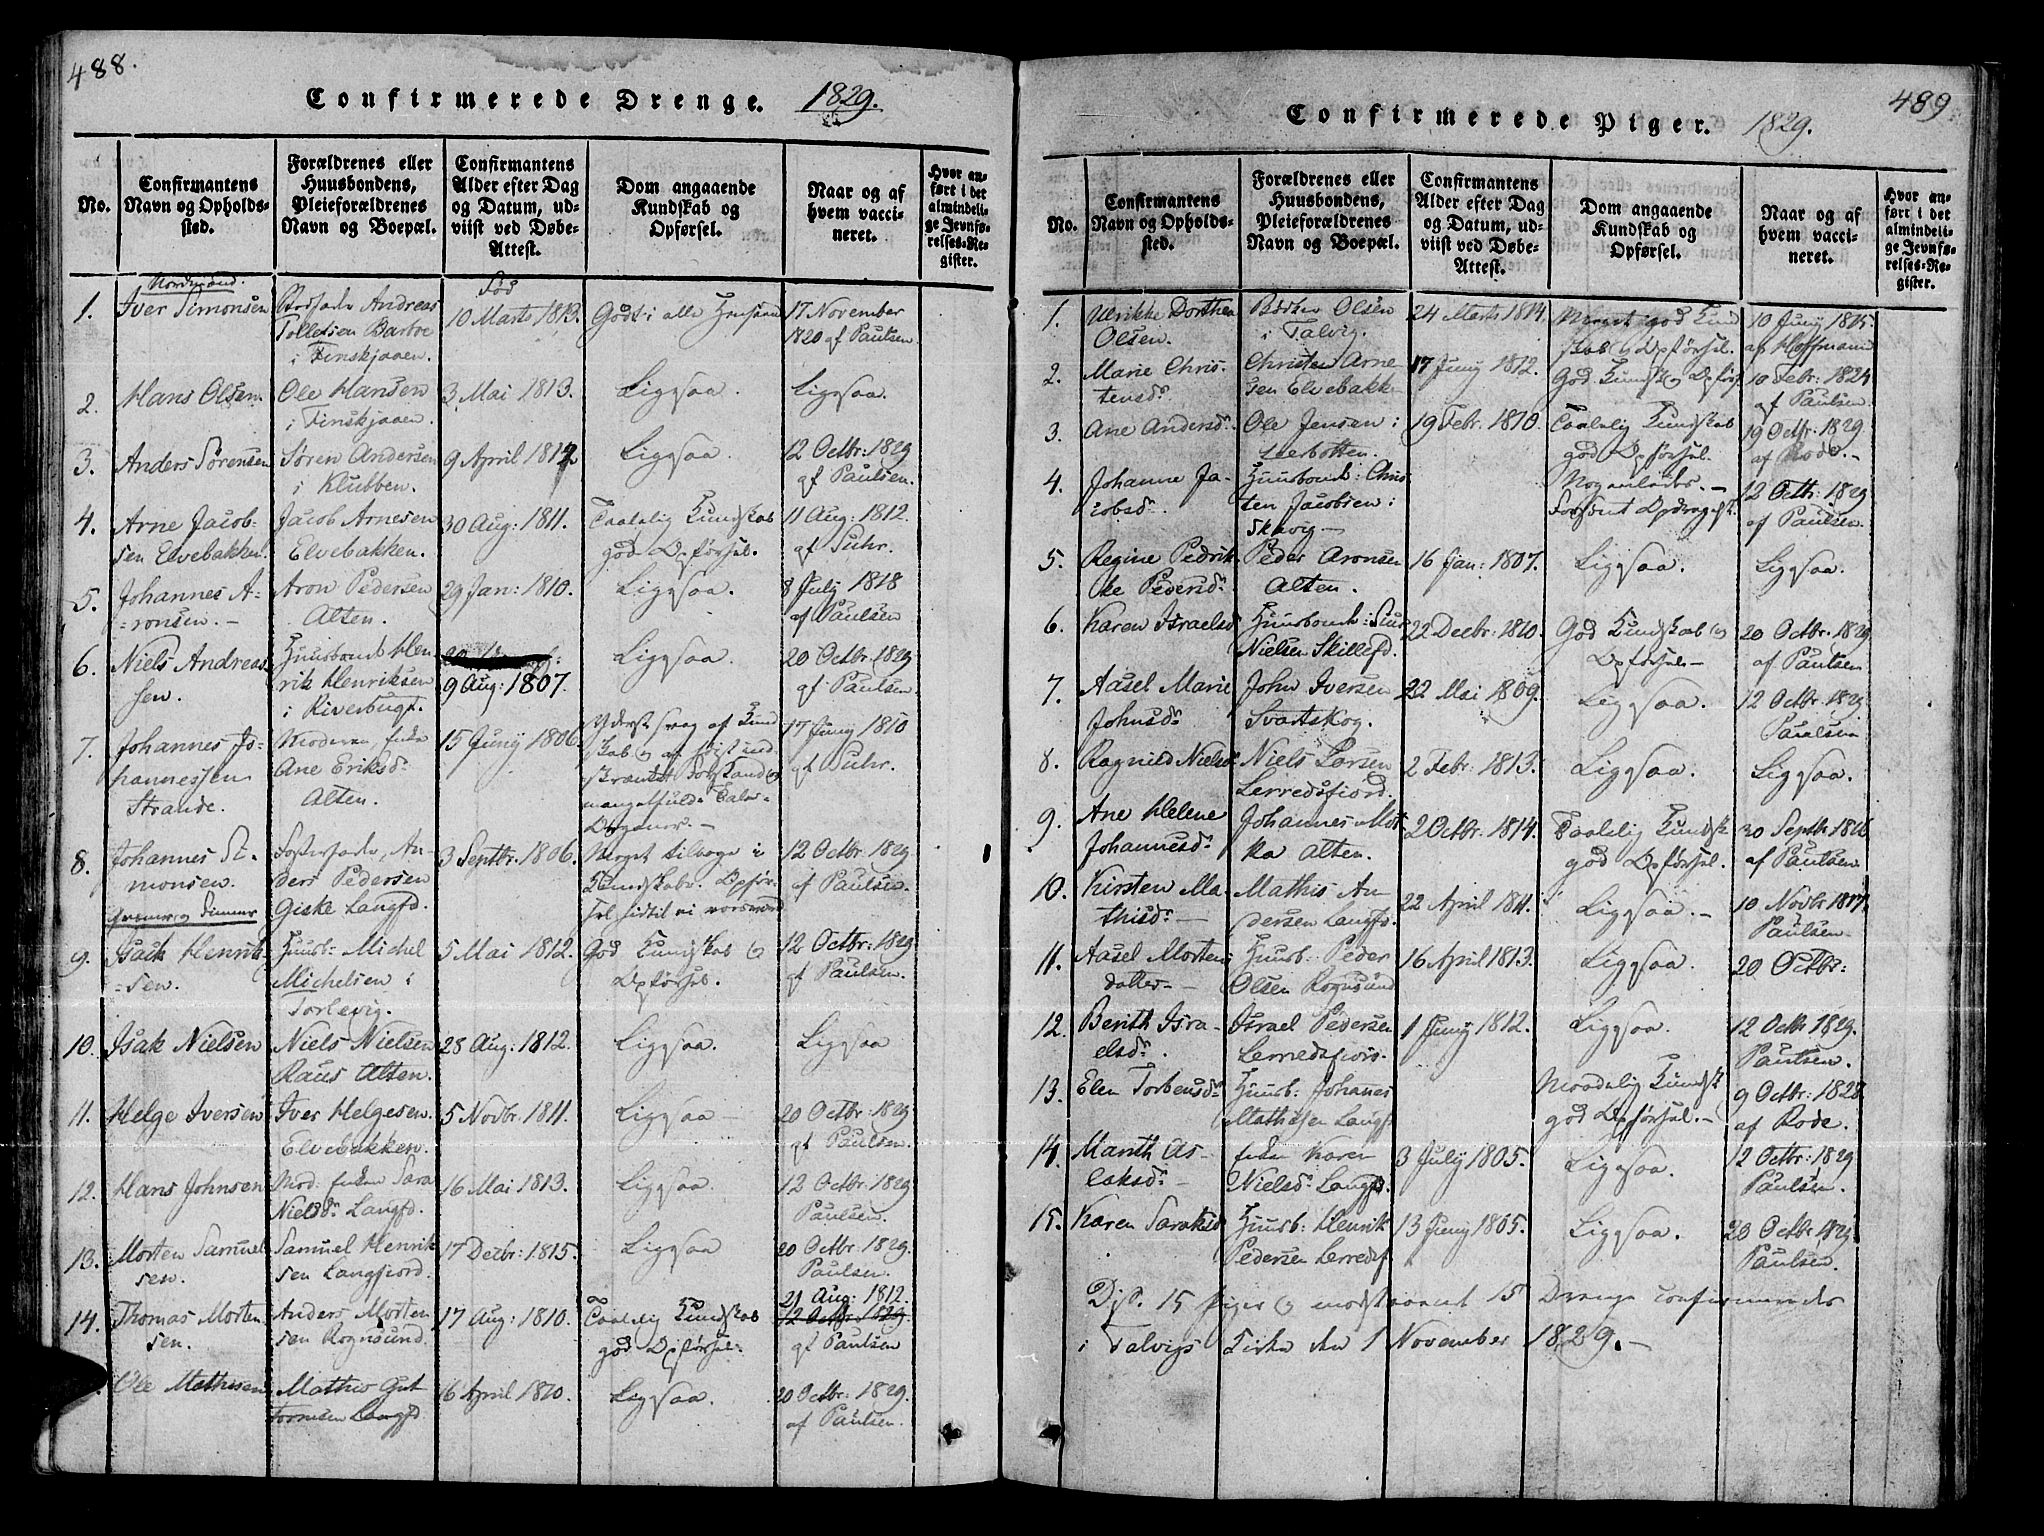 488.
Confirmerede Drenge. 1829.
No.
Confirmantens Navn og Opholds-sted.
Forældrenes eller Huusbondens, Pleieforældrenes Navn og Boepæl.
Confirmantens Alder efter Dag og Datum, ud-viist ved Døbe-Attest.
Dom angaaende Kundskab og Opførsel.
Naar og af hvem vacci-neret.
Hvor an-ført i det almindeli-ge Jevnfø-relses-Re-gister.
Nordmænd.
1. Iver Simonsen
Andreas Tollefsen i Finskjaaen.
Fød 10 Marts 1813.
Godt i alle
17 November 1820 af Paulsen
2. Hans Olsen.
Ole Hansen i Finskjaaen.
3 Mai 1813.
Ligesaa.
Ligesaa.
3. Anders Sørensen
Søren Andersen i Klubben.
9 April 1812
Ligesaa.
12 Octbr: 1829 af Paulsen.
4. Arne Jacob-sen Elvebakken.
Jacob Arnesen Elvebakken.
30 Aug: 1811.
Taalelig Kundskab god Opførsel.
11 Aug: 1812. af Suhr.
5. Johannes A-ronsen.
Aron Pedersen Alten.
29 Jan: 1810.
Ligesaa.
8 July 1818 af Paulsen
6. Niels Andreas-sen.
Huusbond Hen-rik Henriksen i Riverbugt.
9 Aug: 1807.
Ligesaa.
20 Octbr: 1829 af Paulsen
7. Johannes Jo-hannessen Strande.
Moderen, Enke Ane Eriksd: Alten.
15 Juny 1806.
Yderst svag af Kund-skab og af høist ind-skrænket Forstand og mangelfulde Tale-Organer.
17 Juny 1810 af Suhr.
8. Johannes Si-monsen.
Fosterfader, An-ders Pedersen Giske Langfd.
3 Septbr: 1806.
Meget tilbage i Kundskaber. Opfør-sel hidtil ei
12 Octbr: 1829 af Paulsen.
Qvæner og Finner
9. Isach Henrik-sen.
Huusb: Michel Michelsen i
5 Mai 1812.
God Kundskab og Opførsel.
12 Octbr: 1829 af Paulsen.
10. Isak Nielsen
Niels Nielsen Raus Alten.
28 Aug: 1812.
Ligesaa.
Ligesaa
11. Helge Iversen
Iver Helgesen. Elvebakken.
5 Novbr: 1811.
Ligesaa
20 Octbr: 1829 af Paulsen.
12. Hans Johnsen
Mod: Enken Sara Nielsd: Langfd.
16 Mai 1813.
Ligesaa.
12 Octbr: 1829 Paulsen.
13. Morten Samuel-sen.
Samuel Henrik-sen Langfiord.
17 Decbr: 1815.
Ligesaa
20 Octbr: 1829. Paulsen.
14. Thomas Morten-sen.
Anders Morten-sen Rognsund.
17 Aug: 1810.
Taalelig Kundskab god Opførsel.
21 Aug: 1812.
12 Octbr: 1829. af Paulsen
Ole Mathisen
Mathis Gut-tormsen Langfd.
16 April 1810.
Ligesaa.
20 Octbr: 1829. af Paulsen.
489
Confirmerede Piger. 1829.
No.
Confirmantens Navn og Opholds-sted.
Forældrenes eller Huusbondens, Pleieforældrenes Navn og Boepæl.
Confirmantens Alder efter Dag og Datum, ud-viist ved Døbe-Attest.
Dom angaaende Kundskab og Opførsel.
Naar og af hvem vacci-neret.
Hvor an-ført i det almindeli-ge Jevnfø-relses-Re-gister.
1. Ulrikke Dorthea Olsen.
Bødker Olsen i Talvig.
24 Marts 1814.
Meget god Kund-skab og Opførsel.
10 Juny 1815. af Hoffmann
2. Marie Chris-tensd:
Christen Arne-sen Elvebakken
17 Juny 1812.
God Kundsk: og Opførs.
10 Febr: 1824 af Paulsen.
3. Ane Andersd:
Ole Jensen i Leerbotten.
19 Febr: 1810.
Taalelig Kundskab god Opførsel.
19 Octbr: 1829 af Rode.
4. Johanne Ja-cobsd:
Huusbond: Chris-ten Jacobsen i Skavig
Nogenledes.
12 Octbr: 1829 af Paulsen.
5. Regine Fedrik-ke Pedersd:
Peder Aronsen Alten.
16 Jan: 1807.
Ligesaa.
Ligesaa.
6. Karen Israelsd:
Huusbond: Siur Nielsen Skillefd.
22 Decbr: 1810.
God Kundskab og Opførsel
20 Octbr: 1829 af Paulsen
7. Aasel Marie Johnsd:
John Iversen Svartskog.
22 Mai 1809.
Ligesaa.
12 Octbr: 1829. Paulsen
8. Ragnild Nielsd:
Niels Larsen Lerredsfiord.
2 Febr: 1813.
Ligesaa.
Ligesaa.
9. Ane Helene Johannesd:
Johannes Alten.
2 Octbr: 1814.
Taalelig Kundsk: god Opførsel.
30 Septbr 1816 af Paulsen.
10. Kirsten Ma-thisd:
Mathis An-dersen Langfd.
22 April 1811.
Ligesaa.
10 Novbr 1817. Paulsen
11. Aasel Mortens-datter
Huusb: Peder Olsen Rognsund
16 April 1813.
Ligesaa.
20 Octbr:
12. Berith Isra-elsd:
Israel Pedersen Lerredsfiord.
1 Juny 1812.
Ligesaa.
12 Octbr 1829. Paulsen.
13. Elen Torbensd:
Huusb: Johanes Mathisen Langf
Maadelig Kundsk god Opførsel.
9 Octbr: 1828 af Rode.
14. Marith As-laksd:
Enken Karen Nielsd: Langfd.
3 July 1805.
Ligesaa.
12 Octbr: 1829 Paulsen.
15. Karen Saraksd:
Huusb: Henrik Pedersen Lerredsf
13 Juny 1805.
Ligesaa.
20 Octbr: 1829. Paulsen.
Disse 15 Piger og modstaaende 15 Drenge confirmeredes
i Talvigs Kirke den 1 November 1829.